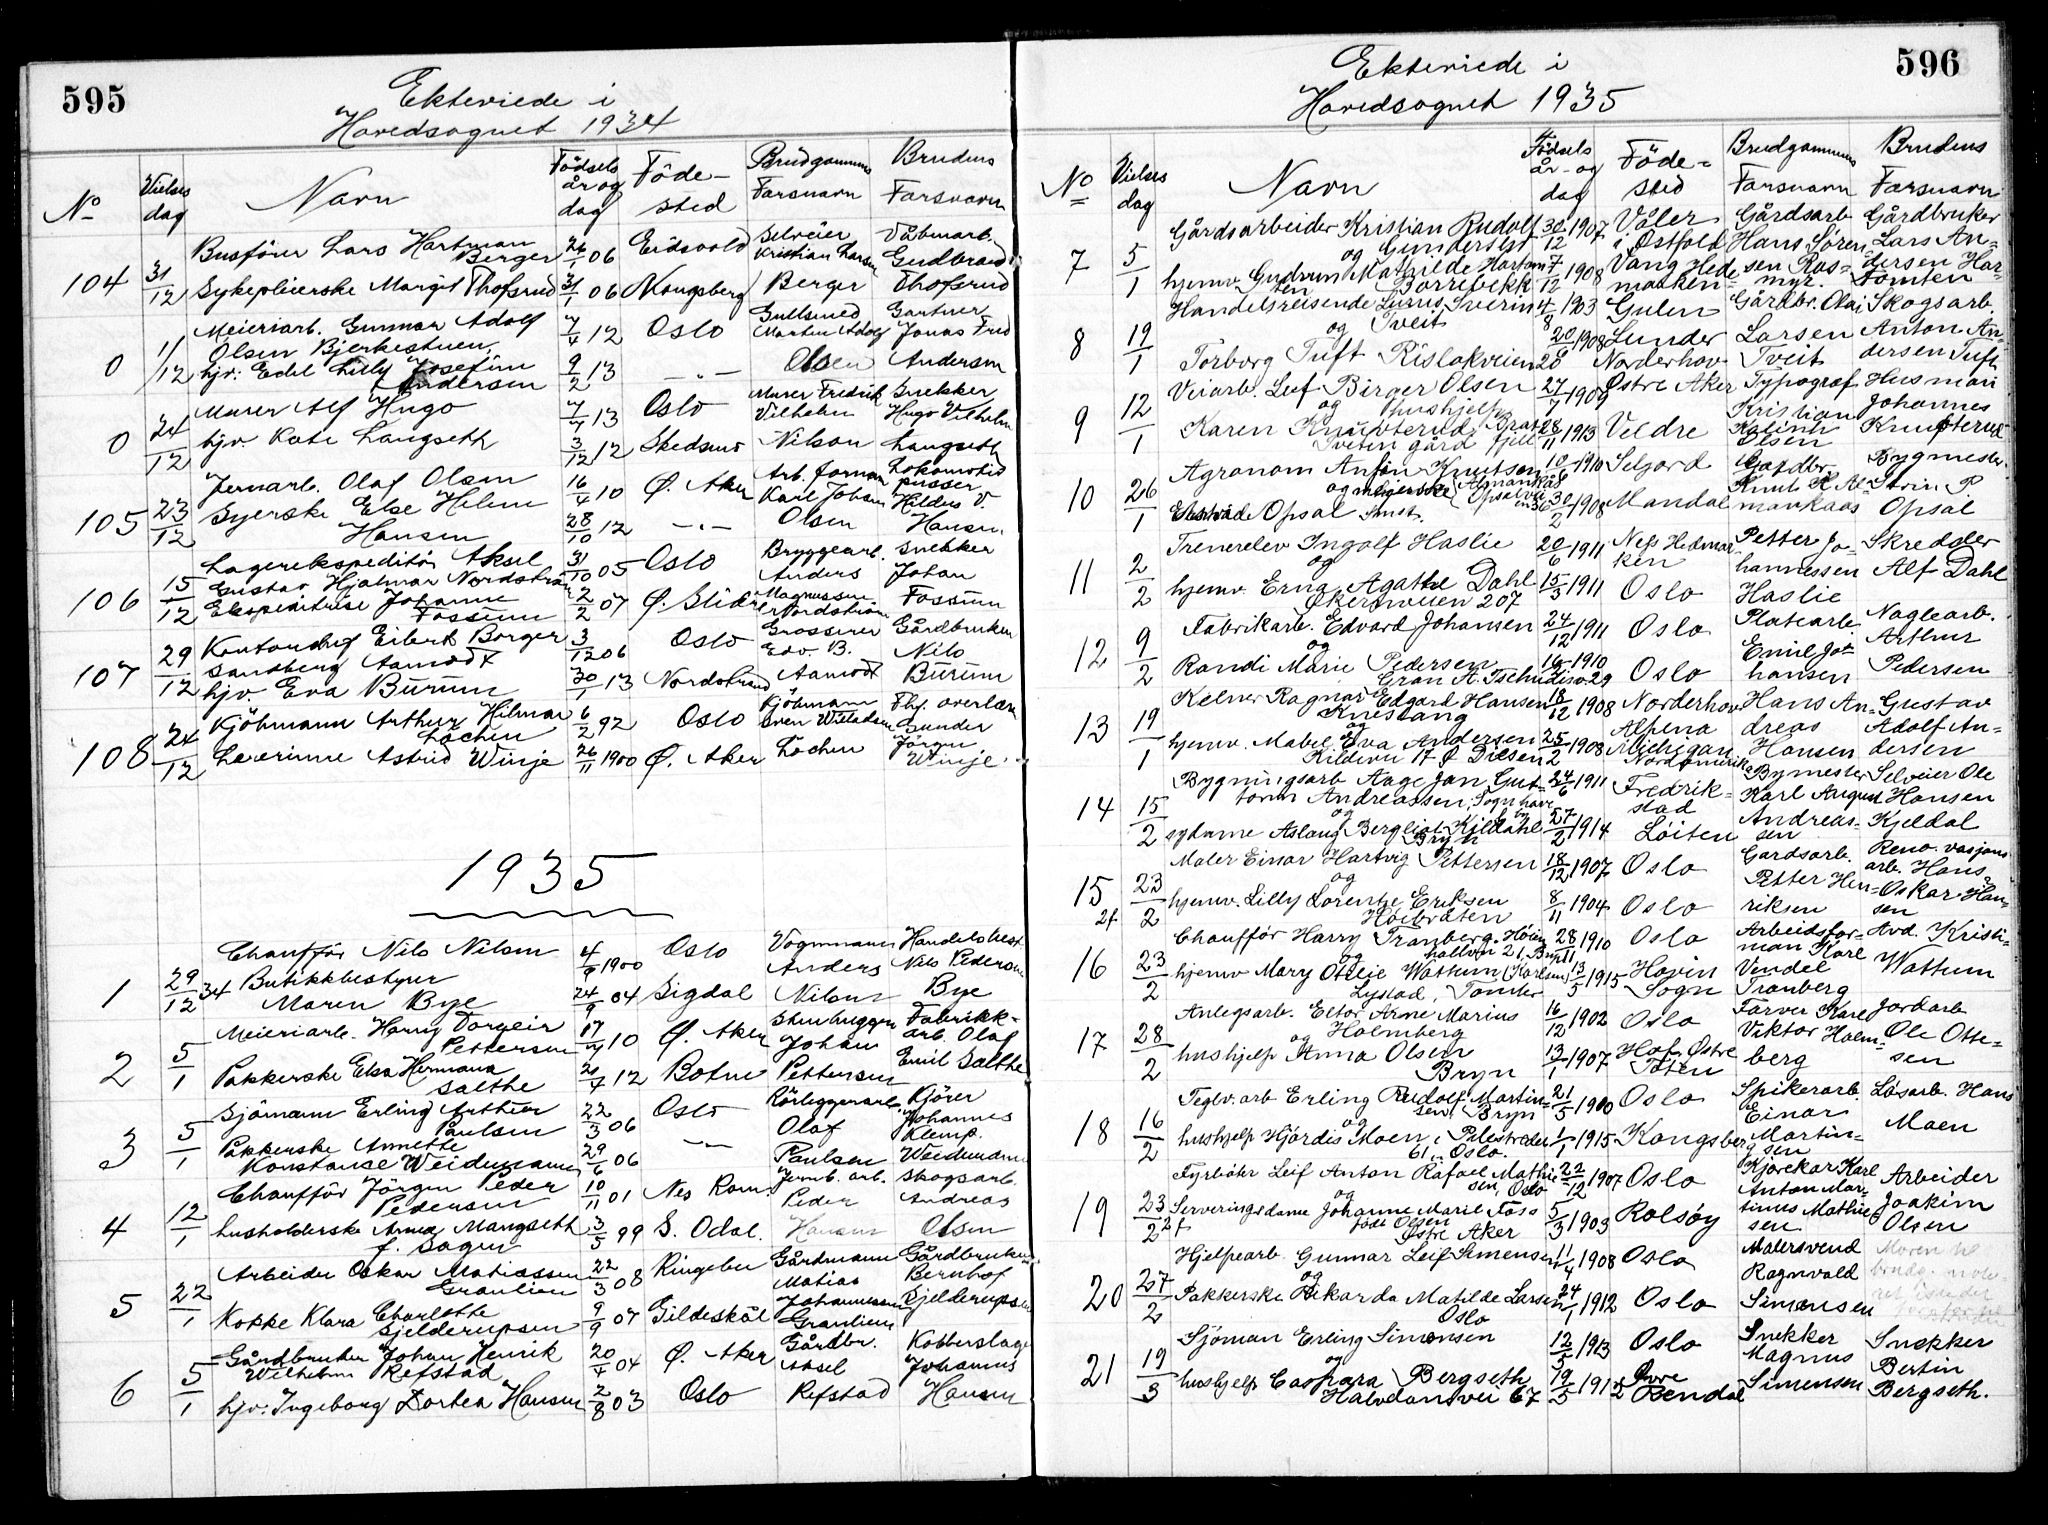 595
Ekteviede i
Hovedsognet 1934
No
Vielses dag
Navn
Fødsels år og dag
Føde-sted
Brudgommens Farsnavn
Brudens Farsnavn
104 31/12
Busfører Lars Hartman Berger 26/1 06 Eidsvold Selveier Kristian Larsen Berger
Sykepleierske Margit Thofsrud 31/1 06 Kongsberg Gudbrand Thofsrud
0 1/12
Meieriarb. Gunnar Adolf Olsen Bjerkestuen 7/4 12 Oslo Gullsmed Martin Adolf Olsen
hjv. Edel Lilly Josefine Andersen 9/2 13 -"- Gartner Jonas Fred Andersen
0 24/12
Murer Alf Hugo 7/7 13 Oslo Murer Fredrik Vilhelm Nilson
hjv. Kate Langseth 3/12 12 Skedsmo Snekker Hugo Vilhelm Langseth
105 23/12
Jernarb. Olaf Olsen 16/4 10 Ø. Aker Arb. forman Karl Johan Olsen
Syerske Else Helene Hansen 28/10 12 -"- Lokomotiv pusser Hildus V. Hansen
106 15/12
Lagerekspeditør Aksel Gustav Hjalmar Nordstrøm 31/10 05 Oslo Bryggearb. Anders Magnussen Nordstrøm
Ekspeditrise Johanne Fossum 2/2 07 Ø. Slidre Snekker Johan Fossum
107 29/12
Kontorchef Eilert Borger Sandberg Aamodt 3/12 06 Oslo Grosserer Edv. B. Aamodt
hjv. Eva Burum 30/1 13 Nordstrand Gårdbruker Nils Burum
108 24/12
Kjøbmann Arthur Hilmar Lochen 6/2 92 Oslo Kjøbmann Sven Løchen
Lærerinne Astrid Winje 26/11 1900 Ø. Aker Fhv. overlærer Gunder Jörgen Winje
1935
1 29/12 34
Chaufför Nils Nilsen 4/9 1900 Oslo Vognmann Anders Nilsen
Butikkbestyrer Maren Bye 24/9 04 Sigdal Handelsbest. Nils Pedersen Bye
2 5/1
Meieriarb. Harry Torgeir Pettersen 17/4 10 Ø. Aker Stenhugger Johan Pettersen
Pakkerske Elsa Hermana Salthe 20/7 12 Botne Fabrikk-arb. Olaf Emil Salthe
3 5/1
Sjömann Erling Arthur Paulsen 22/3 06 Oslo Rörleggerarb. Olaf Paulsen
Pakkerske Annette Konstanse Weidemann 29/6 06 -"- Kjörer Johannes Klemp. Weidemann
4 12/1
Chaufför Jörgen Peder Pedersen 10/11 01 Nes Rom. Jernb. arb. Peder Hansen
husholderske Anna Mangseth f. Sagen 3/5 99 S. Odal. Skogsarb. Andreas Olsen
5 22/1
Arbeider Oskar Matiassen Granlien 22/3 08 Ringebu Gårdmann Matias Johannessen Granlien
Kokke Klara Charlotte Gjelderupsen 9/9 07 Gildeskål Gårdbruker Bernhof Gjelderupsen
6 5/1
Gårdbruker Johan Henrik Wilhelm Refstad 20/4 04 Ø. Aker Gårdbr. Aksel Refstad
hjv. Ingeborg Dortea Hansen 2/8 03 Oslo Kobberslager Johannes Hansen
596
Ekteviede i
Hovedsognet 1935
No
Vielses dag
Navn
Fødsels år- og dag
Føde-sted
Brudgommens Farsnavn
Brudens Farsnavn
7 5/1
Gårdsarbeider Kristian Rudolf Gundersen 30/12 1907 Våler i Østfold Gårdsarb Hans Søren-sen Ras-myr.
og
hjemv. Gudrun Mathilde Hartom-ten Borrebekk 7/12 1908 Vang Hedemarken Gårdbruker Lars An-dersen Har-tomten
8 19/1
Handelsreisende Lurus Sverin Tveit 4/8 1903 Gulen Gårdbr. Olai Larsen Tveit
og
Torborg Tuft Rislokveien 28 20/8 1908 Lunder Norderhov Skogsarb. Anton An-dersen Tuft
9 12/1
Veiarb. Leif Birger Olsen 27/7 1909 Østre Aker Typograf Kristian Kolinh Olsen
og hushjelp
Karen Knapterud Tveten gård fjell 28/11 1913 Veldre Husmann Johannes Knapterud
10 26/1
Agronom Anfin Knutsen Almankås 10/8 1910 Seljord Gårdbr. Knut K. Al-mankaas
og meierske
Opsal Smst. 30/2 1908 Mandal Bygmester Strin P Opsal
11 2/2
Trenerelev Ingolf Haslie 20/6 1911 Nes Hedmarken Petter Jo-hannessen Haslie
og
hjemv. Erna Agathe Dahl Økernveien 207 15/3 1911 Oslo Skredder Alf Dahl
12 9/2
Fabrikarb. Edvard Johansen 24/12 1911 Oslo Platearb. Emil Jo-hansen
og
Randi Marie Pedersen Gran A. Tschudisv. 29 16 1910 Oslo Naglearb. Arthur Pedersen
13 19/1
Kelner Ragnar Edgard Hansen Knestang 18/12 1908 Norderhov Hans An-dreas Hansen
og
hjemv. Mabel Eva Andersen Kildevn 17 Ø Dilsen 25/2 1908 Alpena Michigan Nordamerika Gustav Adolf An-dersen
14 15/2
Bygningsarb Aage Jan Gut-torm Andreassen, Sogn haveby 24/6 1911 Fredrik-stad Bymester Karl August Andreas-sen
og
sydame Aslaug Bergliot Kjeldahl Bryn 27/2 1914 Løiten Selveier Ole Hansen Kjeldal
15 23/2 2f
Maler Einar Hartvig Pettersen 18/12 1907 Oslo Gardsarb. Petter Hen-riksen
og
hjemv. Lilly Lorentze Eriksen Høibråten 8/11 1904 Oslo Reno.vasjons arb. Hans Oskar Han-sen
16 23/2
Chauffør Harry Tranberg. Høien hallvn 21, Bryn 28/11 1910 Oslo Arbeidsfor-man Karl Vendel Tranberg
og
hjemv Mary Otelie Wattum (Karlsen) Lystad, Tomter 13/5 1915 Hovin Sogn Avd. Kristi-an Wattum
17 28/2
Anlegsarb. Eltor Arne Marius Holmberg 16/12 1902 Oslo Farver Karl Viktor Holm-berg
og
hushjelp Anna Olsen Bryn 13/1 1907 Hof Østre Toten Jordarb Ole Otte-sen
18 16/2
Teglv. arb Erling Rudolf Martin-sen, Bryn 21/5 1900 Oslo Spikerarb. Einar Martin-sen
og
hushjelp Hjördis Moen, Pilestredet 61, Oslo. 1/1 1915 Kongsberg Løsarb. Hans Moen
19 23/2 2f
Fyrbøter Leif Anton Rafael Mathie-sen, Oslo 22/12 1907 Oslo Kjørekar Karl Anton Mar-tinus Mathie-sen
og
Serveringsdame Johanne Marie Foss född Olsen Østre Aker 5/3 1903 Rolsøy Arbeider Joakim Olsen
20 27/2
Hjelpearb. Gunnar Leif Simensen 11/4 1908 Oslo Malersvend Ragnvald Simensen
og
Pakkerske Rikarda Matilde Larsen Oslo 24/1 1912 Oslo Moren til
21 19/3
Sjöman Erling Simensen 12/5 1913 Oslo Snekker Magnus Simensen
og
hushjelp Caspara Bergseth Halvdansvei 67 19/5 1912 Øvre Rendal Snekker Bertin Bergseth.